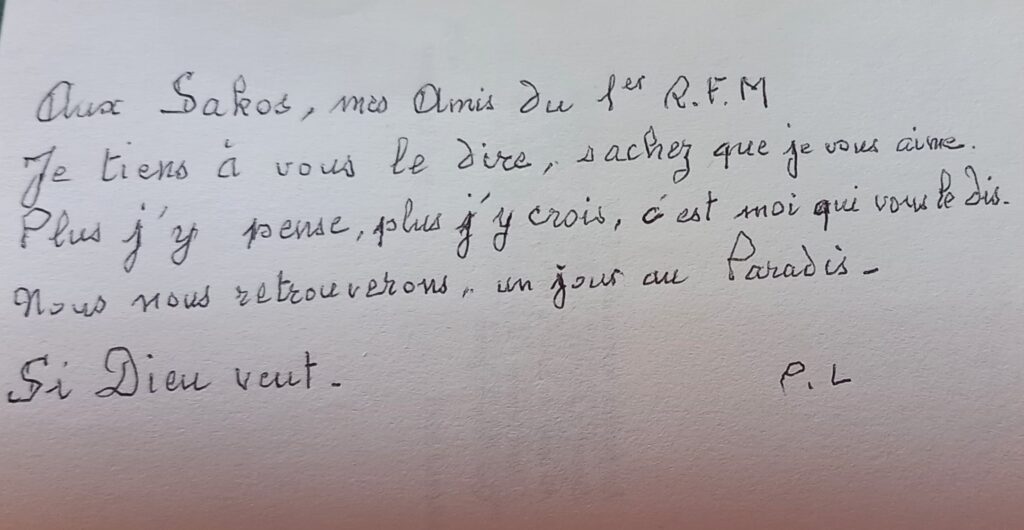 Aux Sakos, mes Amis du 1er R.F.M
Je tiens à vous le dire, sachez que je vous aime.
Plus j'y pense, plus j'y crois, c'est moi qui vous le dis.
Nous nous retrouverons, un jour au Paradis -
Si Dieu veut -
P. L